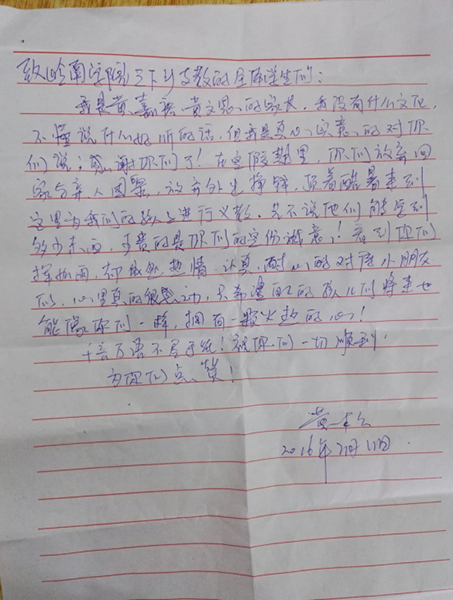 致岭南师院三下乡支教的全体学生们：
我是黄嘉 黄文思的家长，我没有什么文化，
不懂说什么好听的话，但我是真心、实意的对你
们说：感谢你们了！在暑假期里，你们放弃回
家与亲人团聚，放弃外出挣钱，顶着酷暑来到
这里为我们的孩子进行义教，先不说他们能学到
多少东西，可贵的是你们的这份诚意！看到你们
挥 雨，却依然热情、认真、耐心的对待小朋友
们，心里真的很感动，只希望自己的孩儿们将来也
能像你们一样，拥有一颗火热的心！
千言万语不 于纸！祝你们一切顺利！
为你们点赞！
黄
2016年7月11日